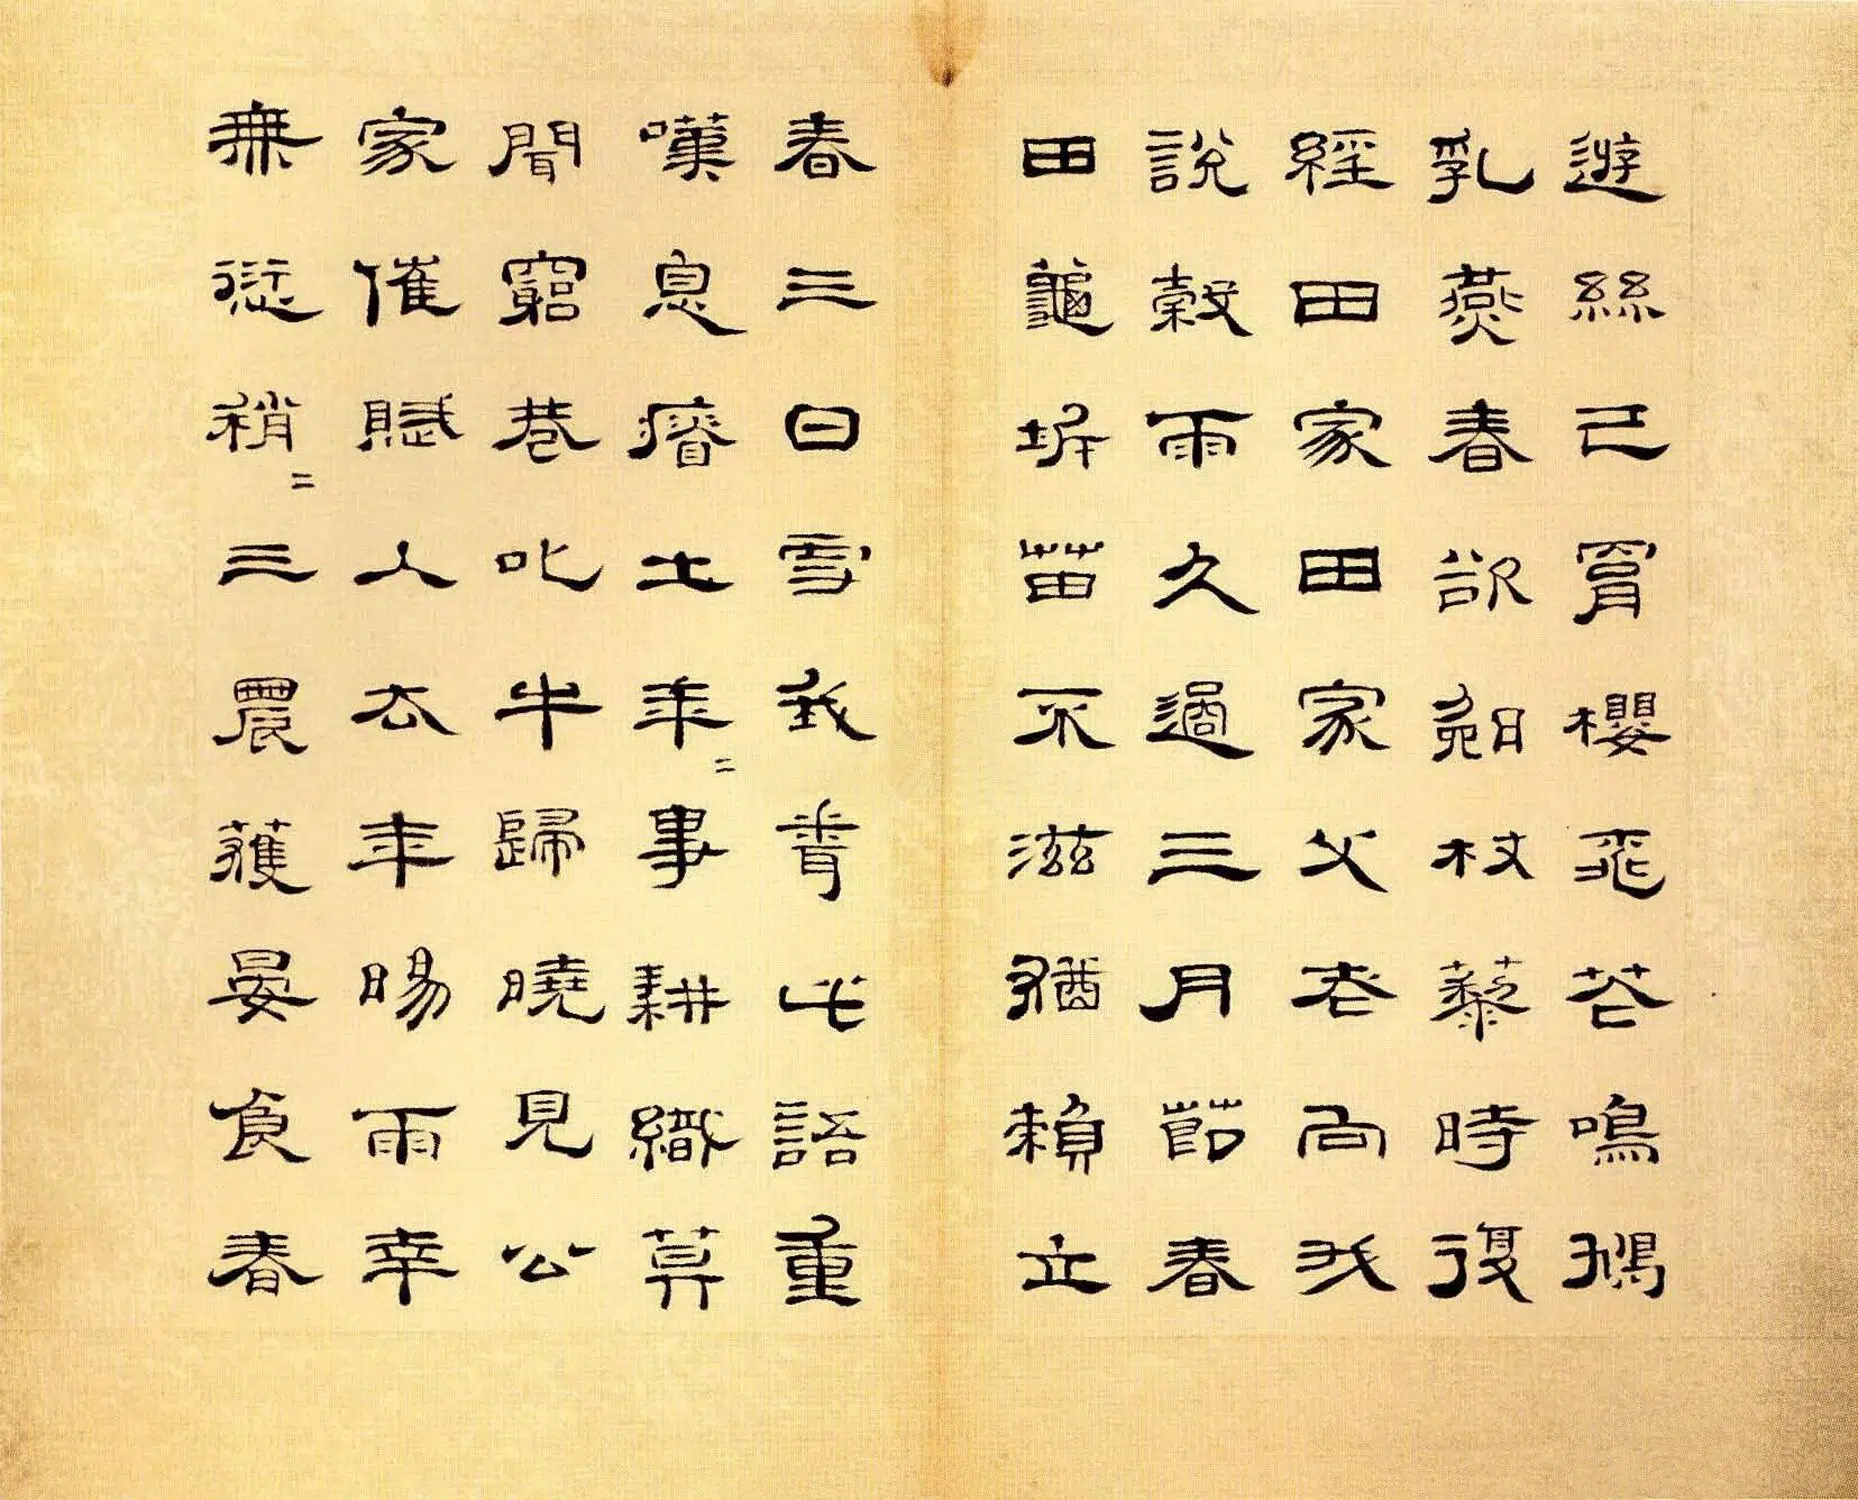 遊絲已罥櫻飛花鳴鳩
乳燕春欲晚杖藜時復
經田家田家父老向我
說穀雨久過三月節春
田龜坼苗不滋猶賴立
春三日雪我昔此語重
嘆息瘠土年〻事耕織莫
聞窮巷叱牛歸曉見公
家催賦入去年暘雨幸
無愆稍〻三農獲晏食春